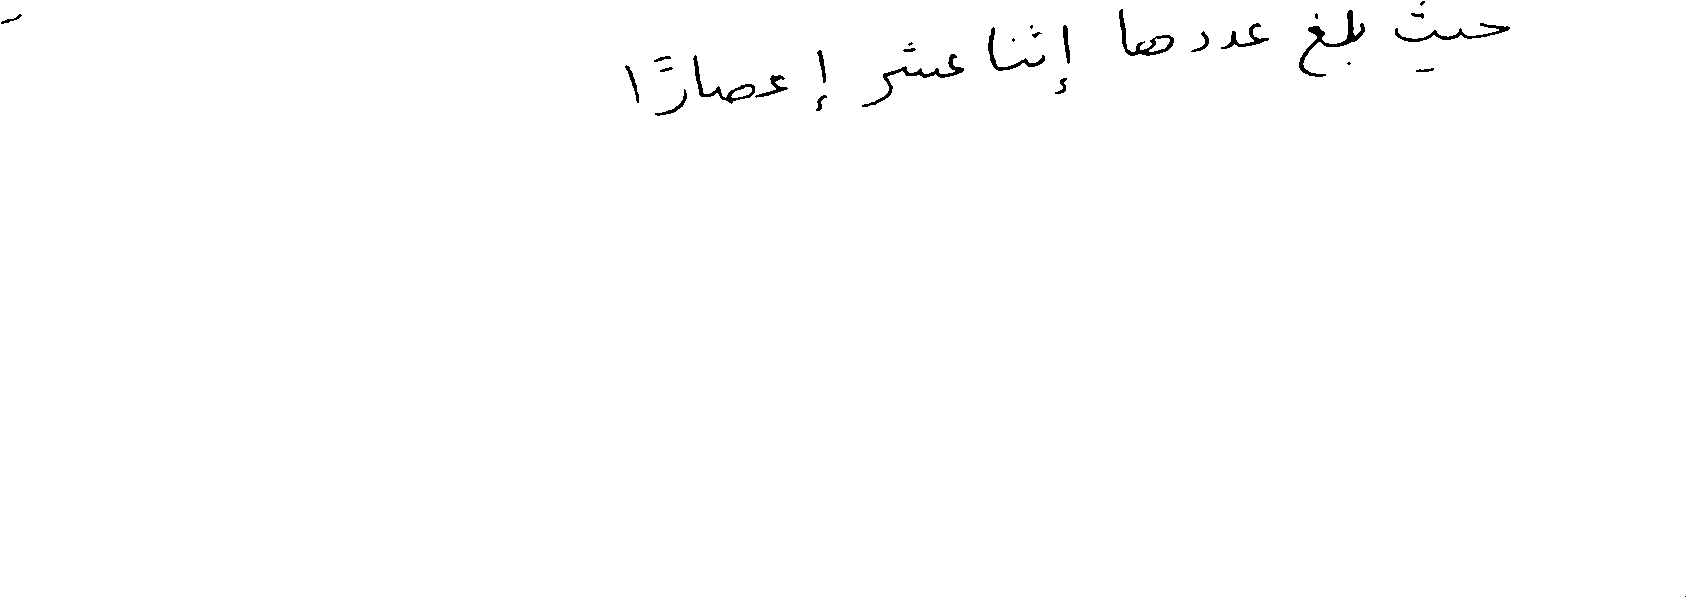 حيث بلغ عددها إثنا عشر إعصارًا